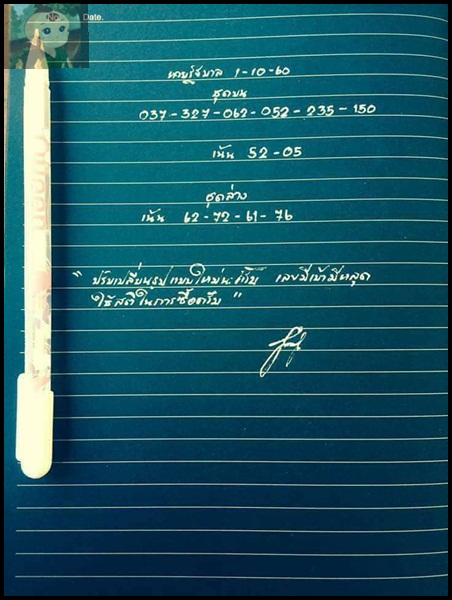 No.
Date.
หวยรัฐบาล 1-10-60
ชุดบน
037-327-062-052-235-150
เน้น 52-05
ชุดล่าง
เน้น 62-72-61-76
" ปรับเปลี่ยนรูปแบบใหม่นะครับ เลขมีเข้ามีหลุด
ใช้สติในการซื้อครับ "